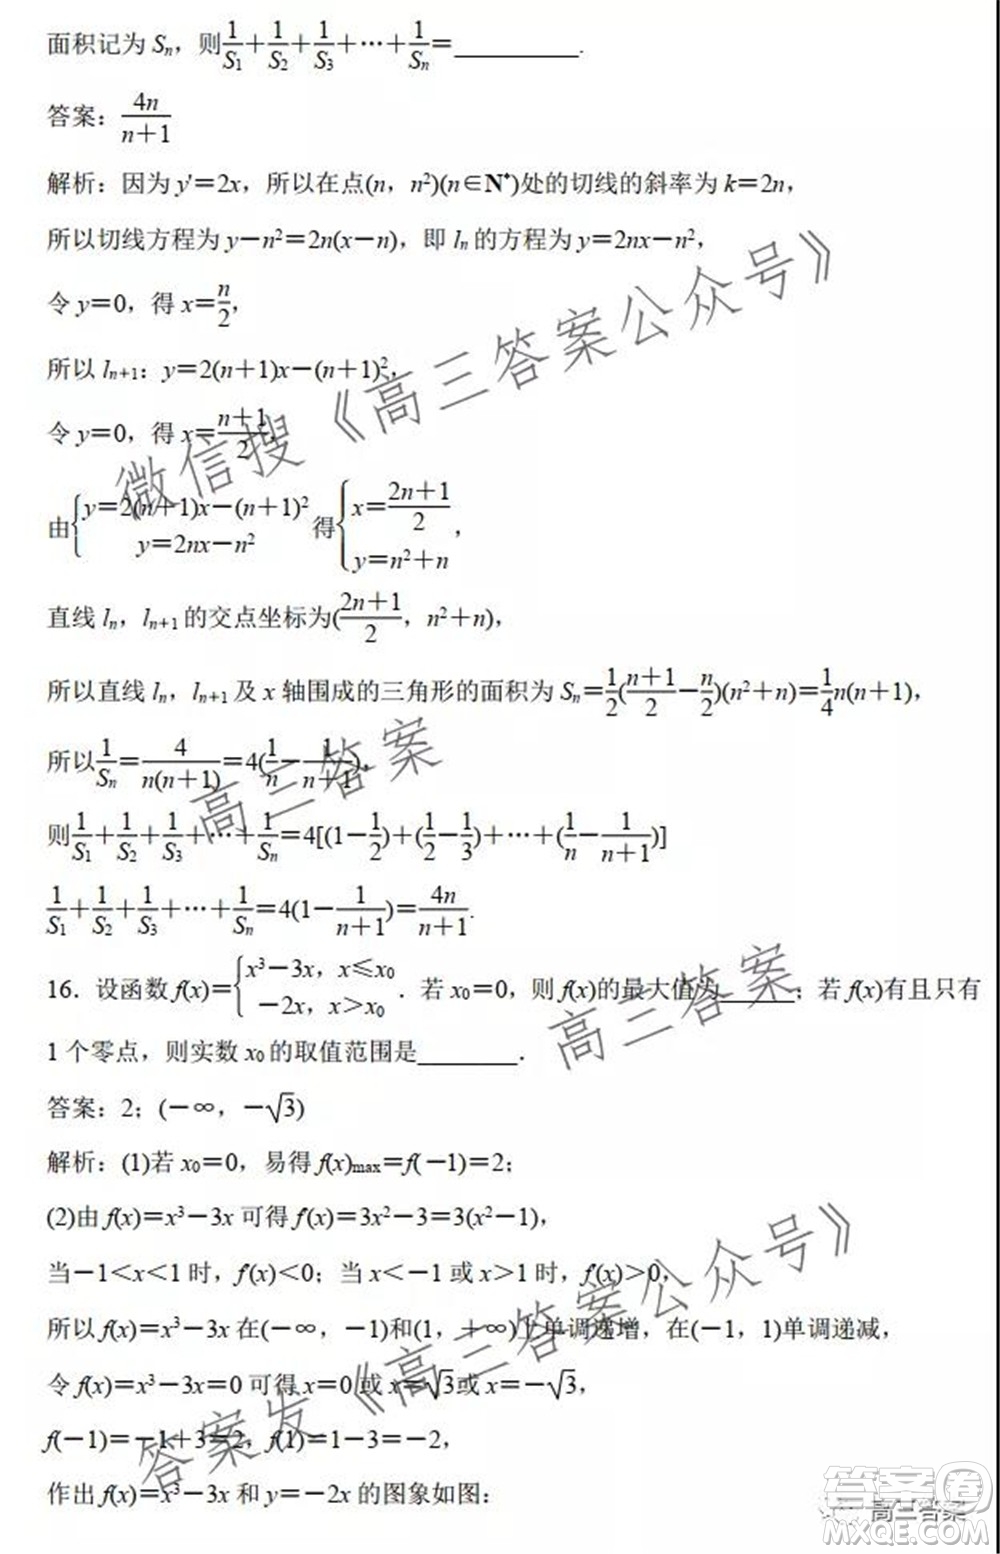 面积记为 Sₙ，则1/S₁+1/S₂+1/S₃+…+1/Sₙ=________.
答案：4n/(n+1)
解析：因为 y′=2x，所以在点(n，n²)(n∈N*)处的切线的斜率为 k=2n，
所以切线方程为 y－n²=2n(x－n)，即 lₙ 的方程为 y=2nx－n²，
令 y=0，得 x=n/2，
所以 lₙ₊₁：y=2(n+1)x－(n+1)²，
令 y=0，得 x=(n+1)/2，
由{y=2(n+1)x－(n+1)²，y=2nx－n² 得{x=(2n+1)/2，y=n²+n，
直线 lₙ，lₙ₊₁ 的交点坐标为((2n+1)/2，n²+n)，
所以直线 lₙ，lₙ₊₁ 及 x 轴围成的三角形的面积为 Sₙ=1/2((n+1)/2－n/2)(n²+n)=1/4n(n+1)，
所以1/Sₙ=4/(n(n+1))=4(1/n－1/(n+1))，
则1/S₁+1/S₂+1/S₃+…+1/Sₙ=4[(1－1/2)+(1/2－1/3)+…+(1/n－1/(n+1))]
1/S₁+1/S₂+1/S₃+…+1/Sₙ=4(1－1/(n+1))=4n/(n+1).
16．设函数 f(x)={x³－3x，x≤x₀ －2x，x>x₀．若 x₀=0，则 f(x)的最大值为______；若 f(x)有且只有
1 个零点，则实数 x₀ 的取值范围是________．
答案：2；(－∞，－√3)
解析：(1)若 x₀=0，易得 f(x)max=f(－1)=2；
(2)由 f(x)=x³－3x 可得 f′(x)=3x²－3=3(x²－1)，
当－1<x<1 时，f′(x)<0；当 x<－1 或 x>1 时，f′(x)>0，
所以 f(x)=x³－3x 在(－∞，－1)和(1，+∞)上单调递增，在(－1，1)单调递减，
令 f(x)=x³－3x=0 可得 x=0 或 x=√3或 x=－√3，
f(－1)=－1+3=2，f(1)=1－3=－2，
作出 f(x)=x³－3x 和 y=－2x 的图象如图：
微信搜《高三答案公众号》
高三答案
高三答案
答案发《高三答案公众号》
高三答案
答案圈
MXQE.COM